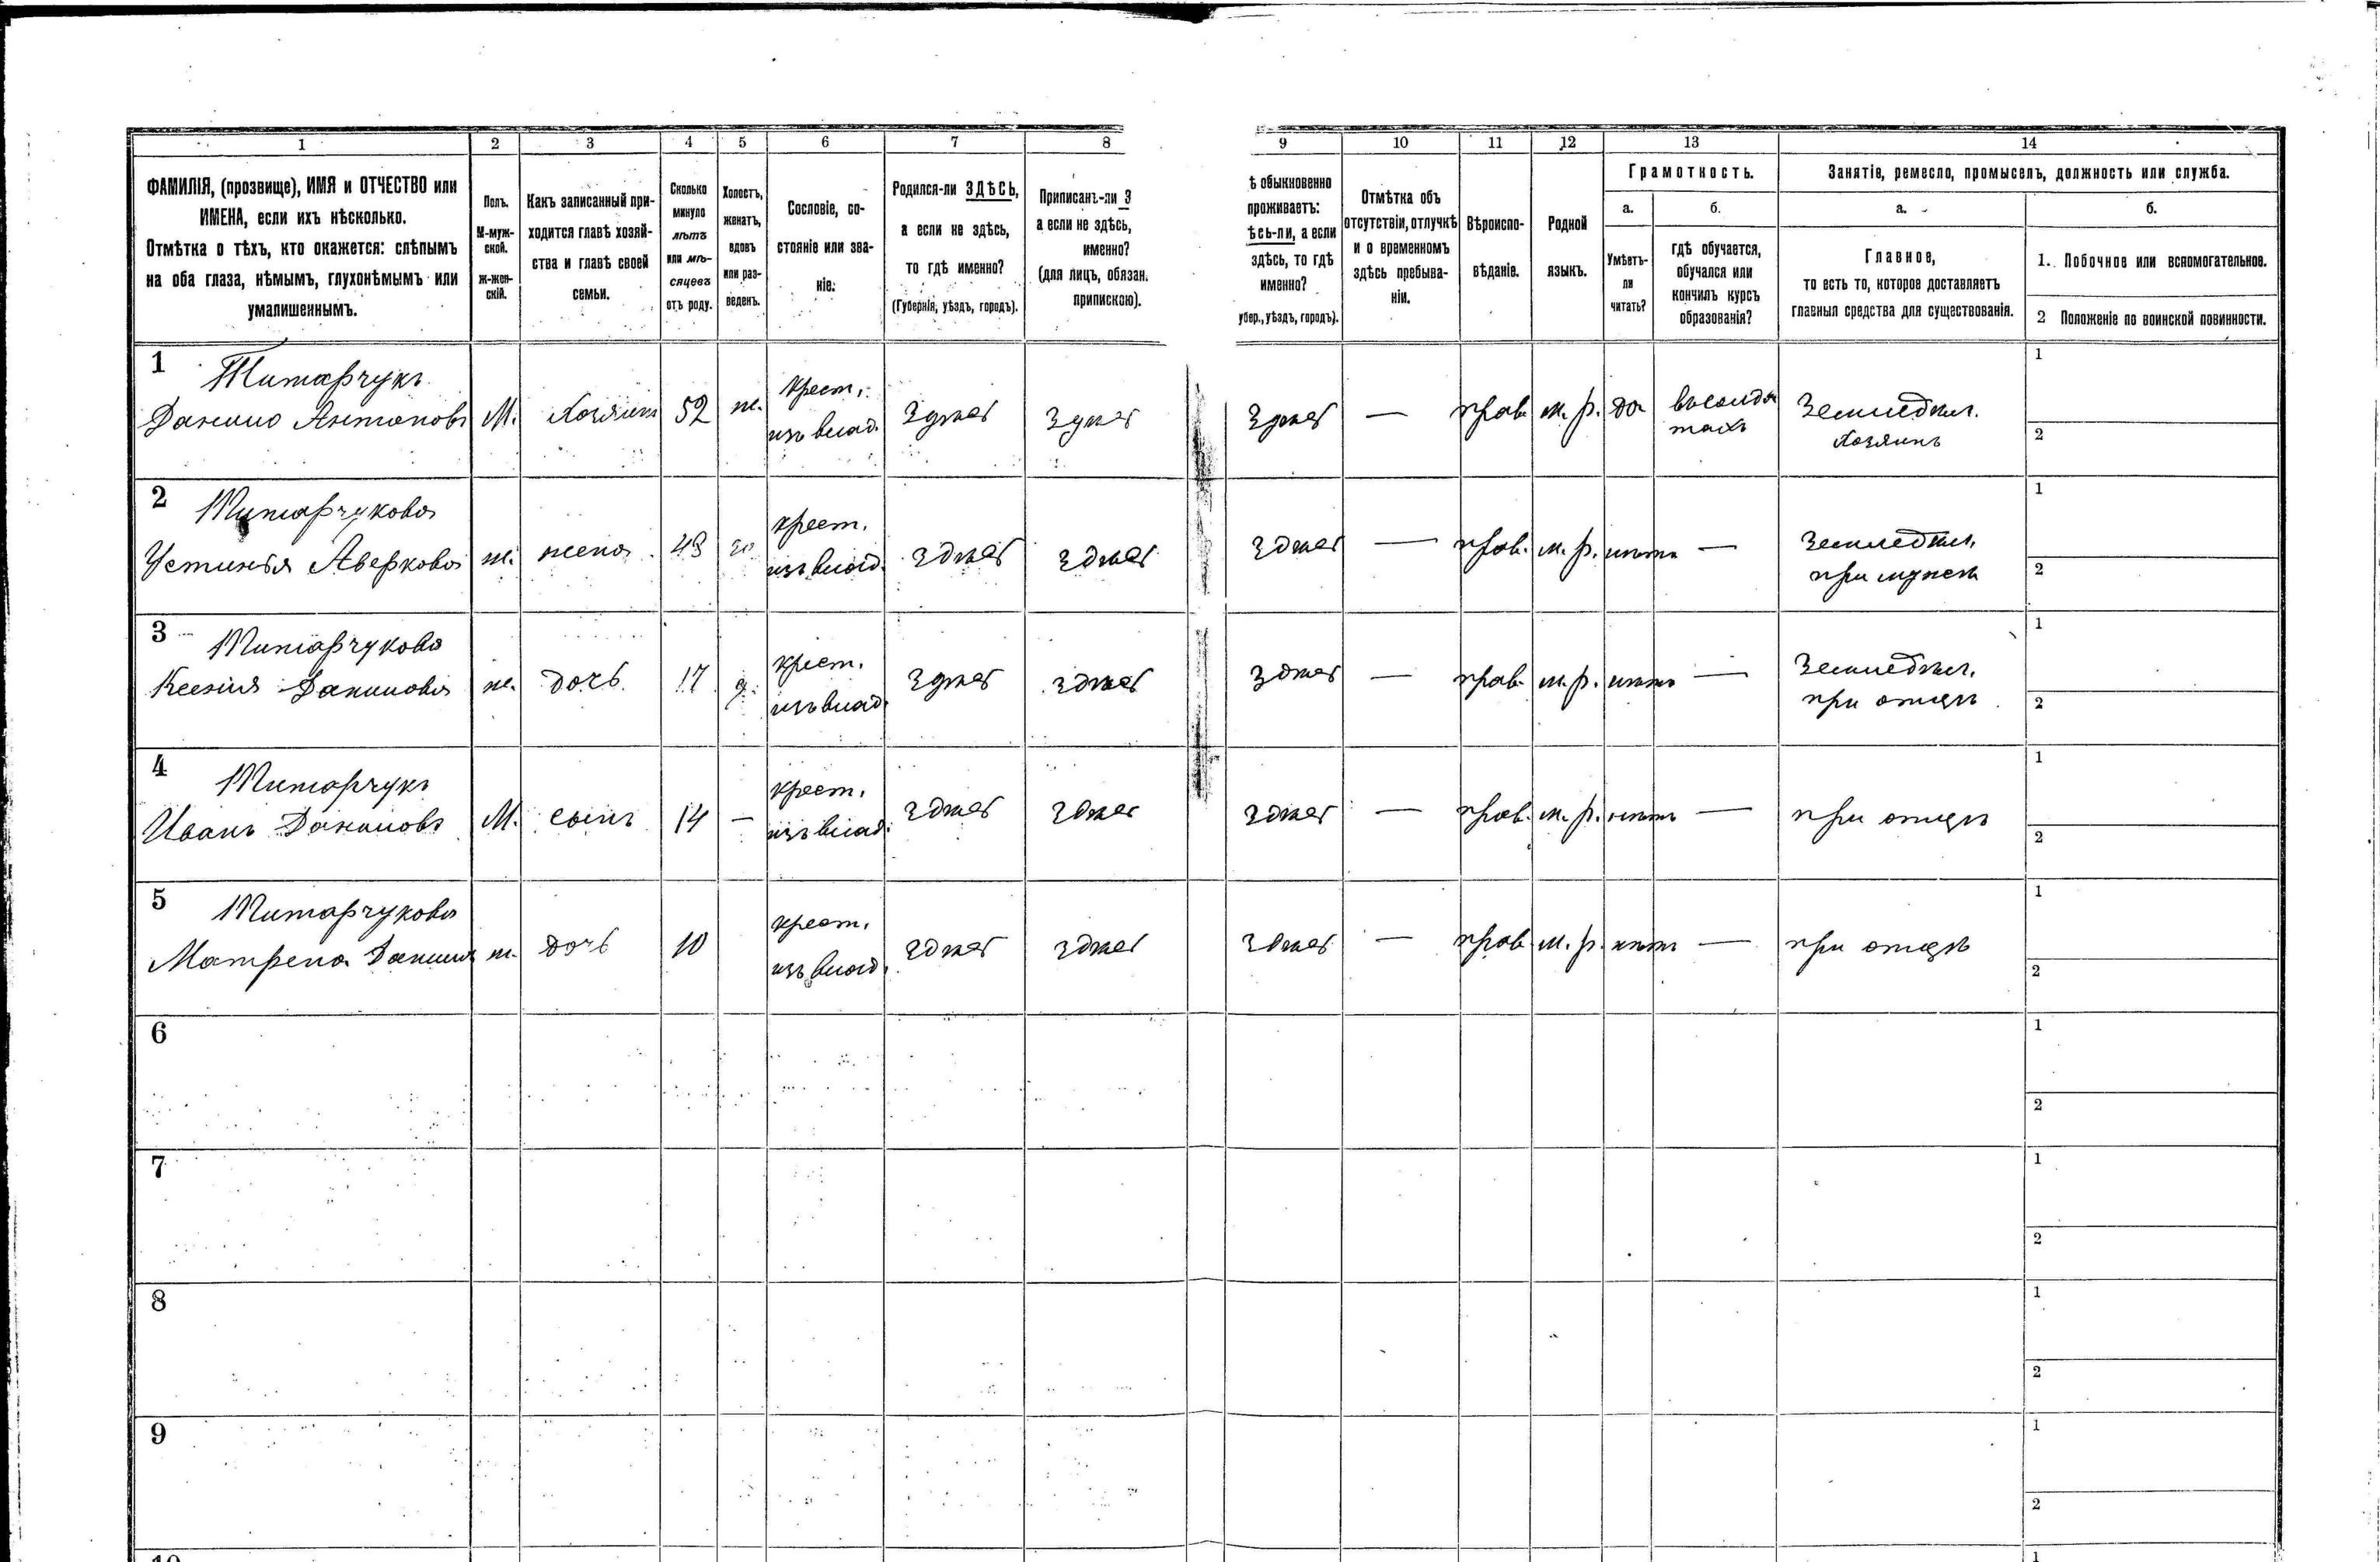 1 2 3 4 5 6 7 8 9 10 11 12 13 14
ФАМИЛІЯ, (прозвище), ИМЯ и ОТЧЕСТВО или
ИМЕНА, если ихъ нѣсколько.
Отмѣтка о тѣхъ, кто окажется: слѣпымъ
на оба глаза, нѣмымъ, глухонѣмымъ или
умалишеннымъ.
Полъ.
М-муж-
ской.
ж-жен-
скій.
Какъ записанный при-
ходится главѣ хозяй-
ства и главѣ своей
семьи.
Сколько
минуло
лѣтъ
или мѣ-
сяцевъ
отъ роду.
Холостъ,
женатъ,
вдовъ
или раз-
веденъ.
Сословіе, со-
стояніе или зва-
ніе.
Родился-ли ЗДѢСЬ,
а если не здѣсь,
то гдѣ именно?
(Губернія, уѣздъ, городъ).
Приписанъ-ли З
а если не здѣсь,
именно?
(для лицъ, обязан.
припискою).
ѣ обыкновенно
проживаетъ:
ѣсь-ли, а если
здѣсь, то гдѣ
именно?
убер., уѣздъ, городъ).
Отмѣтка объ
отсутствіи, отлучкѣ
и о временномъ
здѣсь пребыва-
ніи.
Вѣроиспо-
вѣданіе.
Родной
языкъ.
Грамотность.
а.
Умѣетъ-
ли
читать?
б.
гдѣ обучается,
обучался или
кончилъ курсъ
образованія?
Занятіе, ремесло, промыселъ, должность или служба.
а.
Главное,
то есть то, которое доставляетъ
главныя средства для существованія.
б.
1. Побочное или вспомогательное.
2 Положеніе по воинской повинности.
1 Титарчукъ
Данило Антоновъ М. Хозяинъ 52 ж. крест. изъ влад. Здѣсь Здѣсь Здѣсь — прав. м. р. да въ солда
тахъ
Земледѣл.
Хозяинъ
1
2
2 Титарчукова
Устинья Аверкова ж. жена 43 крест. изъ влад. здѣсь здѣсь здѣсь — прав. м. р. нѣтъ —
Земледѣл.
при мужѣ
1
2
3 Титарчукова
Ксенія Данилова ж. дочь 17 д. крест. изъ влад. здѣсь здѣсь здѣсь — прав. м. р. нѣтъ —
Земледѣл.
при отцѣ
1
2
4 Титарчукъ
Иванъ Даниловъ М. сынъ 14 — крест. изъ влад. здѣсь здѣсь здѣсь — прав. м. р. нѣтъ — при отцѣ
1
2
5 Титарчукова
Матрена Данил ж. дочь 10 крест. изъ влад. здѣсь здѣсь здѣсь — прав. м. р. нѣтъ — при отцѣ
1
2
6
1
2
7
1
2
8
1
2
9
1
2
10
1